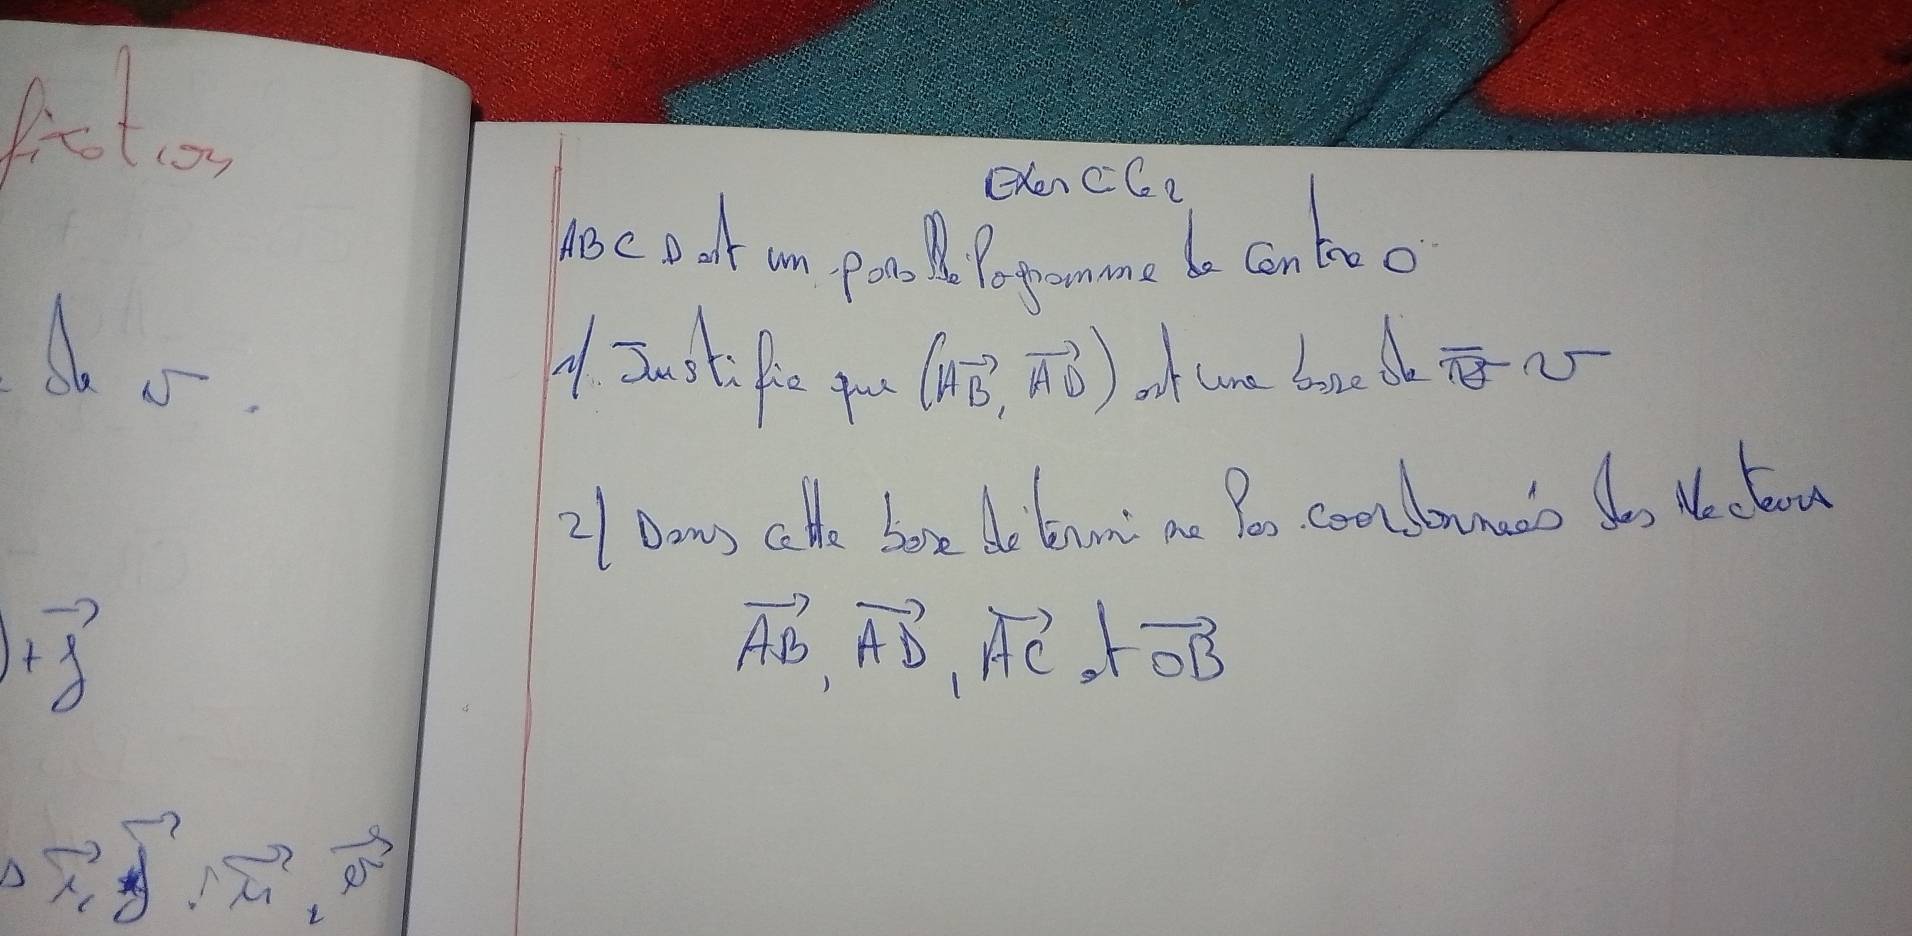 fication
de v.
)+j⃗
Exercice 2
ABCD est un parallélogramme de centre O
1/. Justifie que (AB⃗, AD⃗) est une base de v
2/ Dans cette base détermine les coordonnées des Vecteurs
AB⃗, AD⃗, AC⃗ et OB⃗